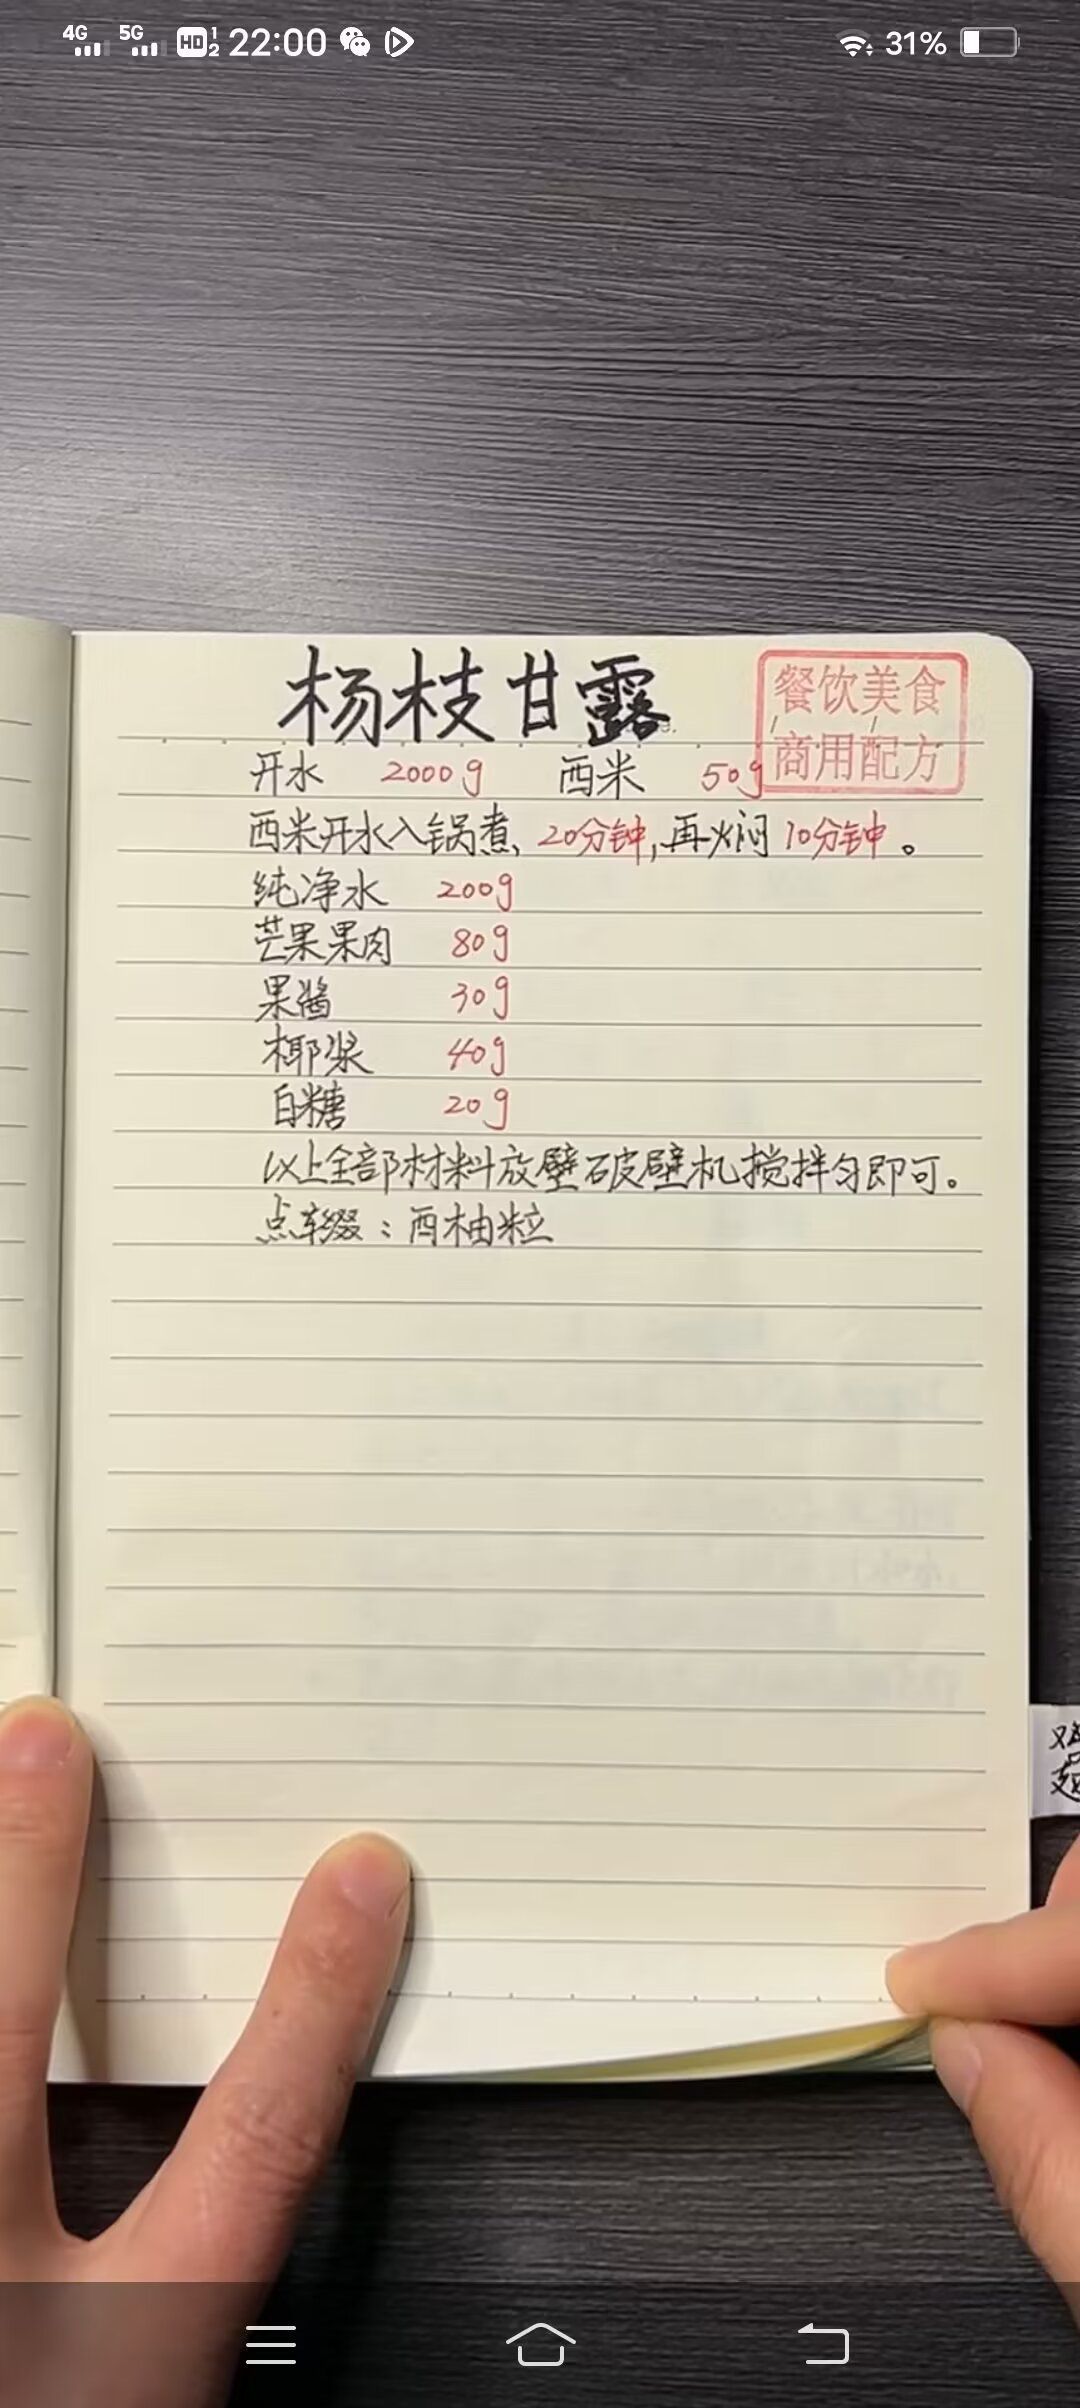 4G 5G HD 1 2 22:00 31%
杨枝甘露
餐饮美食
商用配方
开水 2000g 西米 50g
西米开水入锅煮, 20分钟,再焖10分钟。
纯净水 200g
芒果果肉 80g
果酱 30g
椰浆 40g
白糖 20g
以上全部材料放壁破壁机搅拌匀即可。
点缀：西柚粒